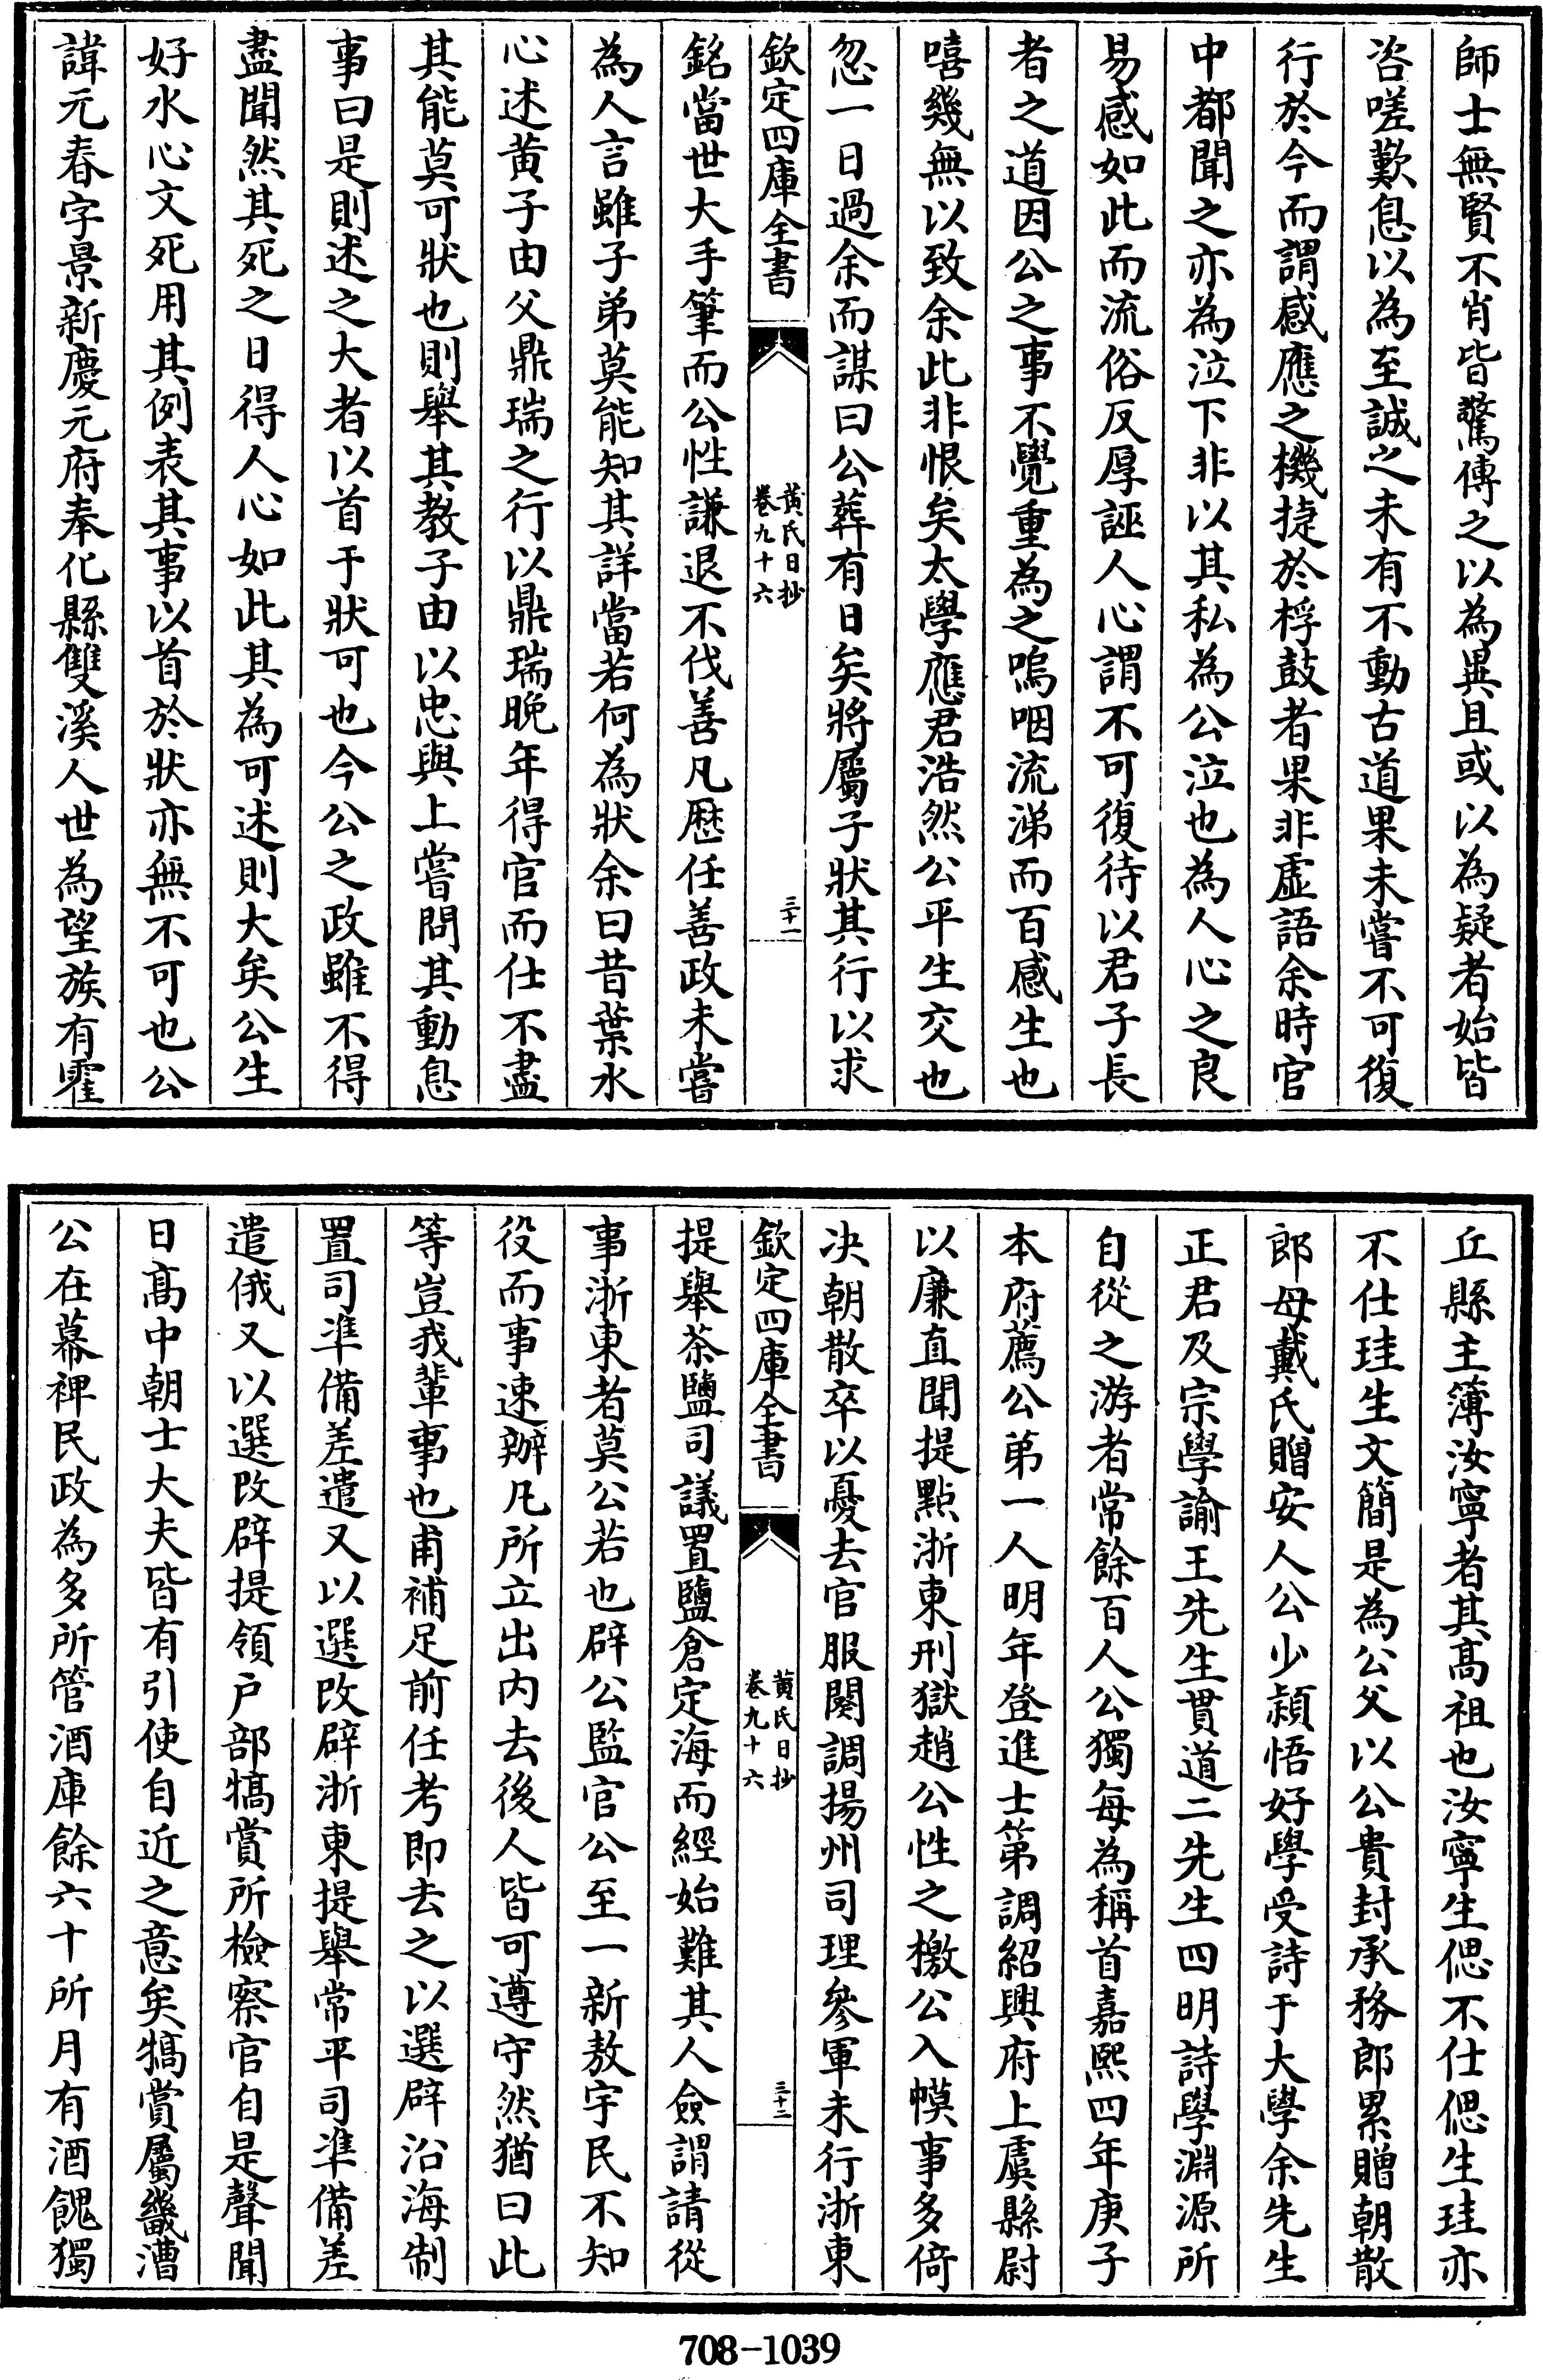 師士無賢不肖皆驚傳之以為異且或以為疑者始皆
咨嗟歎息以為至誠之未有不動古道果未嘗不可復
行於今而謂感應之機捷於桴鼓者果非虛語余時官
中都聞之亦為泣下非以其私為公泣也為人心之良
易感如此而流俗反厚誣人心謂不可復待以君子長
者之道因公之事不覺重為之嗚咽流涕而百感生也
嘻幾無以致余此非恨矣太學應君浩然公平生交也
忽一日過余而謀曰公葬有日矣將屬子狀其行以求
欽定四庫全書
黃氏日抄
卷九十六
三十一
銘當世大手筆而公性謙退不伐善凡歷任善政未嘗
為人言雖子弟莫能知其詳當若何為狀余曰昔葉水
心述黃子由父鼎瑞之行以鼎瑞晚年得官而仕不盡
其能莫可狀也則舉其教子由以忠與上嘗問其動息
事曰是則述之大者以首于狀可也今公之政雖不得
盡聞然其死之日得人心如此其為可述則大矣公生
好水心文死用其例表其事以首於狀亦無不可也公
諱元春字景新慶元府奉化縣雙溪人世為望族有霍
丘縣主簿汝寧者其高祖也汝寧生偲不仕偲生珪亦
不仕珪生文簡是為公父以公貴封承務郎累贈朝散
郎母戴氏贈安人公少穎悟好學受詩于大學余先生
正君及宗學諭王先生貫道二先生四明詩學淵源所
自從之游者常餘百人公獨每為稱首嘉熙四年庚子
本府薦公第一人明年登進士第調紹興府上虞縣尉
以廉直聞提點浙東刑獄趙公性之檄公入幙事多倚
决朝散卒以憂去官服闋調揚州司理參軍未行浙東
欽定四庫全書
黃氏日抄
卷九十六
三十二
提舉茶鹽司議置鹽倉定海而經始難其人僉謂請從
事浙東者莫公若也辟公監官公至一新敖宇民不知
役而事速辦凡所立出内去後人皆可遵守然猶曰此
等豈我輩事也甫補足前任考即去之以選辟沿海制
置司凖備差遣又以選改辟浙東提舉常平司凖備差
遣俄又以選改辟提領户部犒賞所檢察官自是聲聞
日高中朝士大夫皆有引使自近之意矣犒賞屬畿漕
公在幕裨民政為多所管酒庫餘六十所月有酒餽獨
708-1039